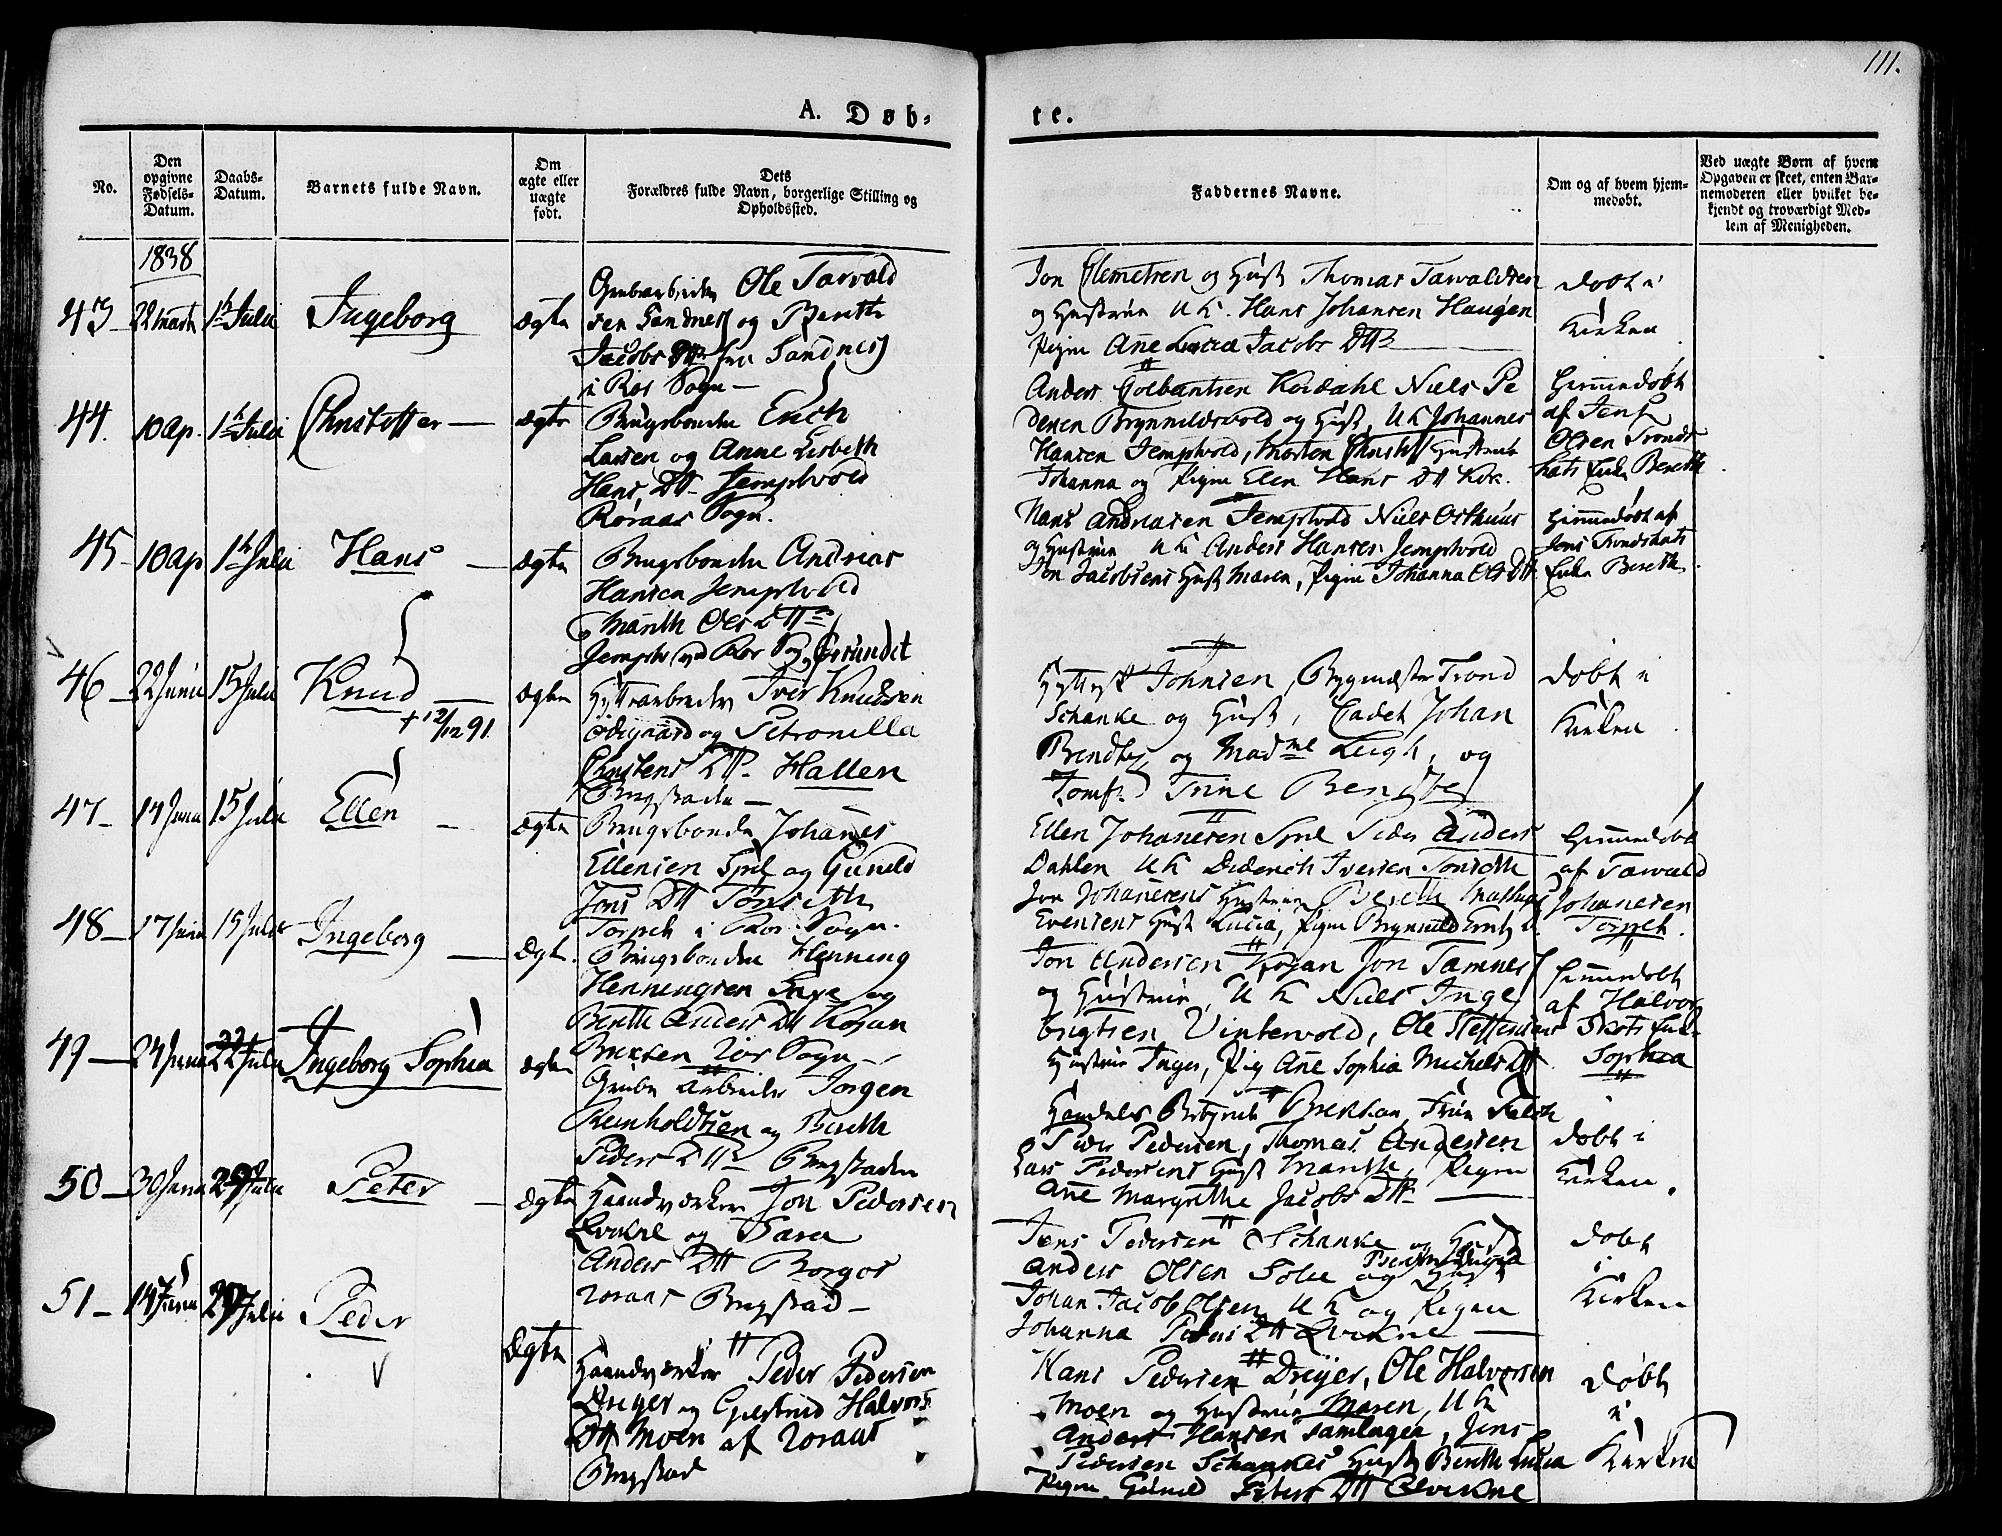 111.
A. Døb-
te.
No.
Den opgivne Fødsels-Datum.
Daabs-Datum.
Barnets fulde Navn.
Om ægte eller uægte født.
Dets Forældres fulde Navn, borgerlige Stilling og Opholdssted.
Faddernes Navne.
Om og af hvem hjem-medøbt.
Ved uægte Børn af hvem Opgaven er skeet, enten Bar-nemoderen eller hvilket be-kjendt og troværdigt Med-lem af Menigheden.
1838
43 22 Marts 1ste Julii Ingeborg Ægte
Grubearbeider Ole Tarvald
sen Sandnes og Bereth
Jacobs Dtt fra Sandnes
i Rør Sogn
Jon Clemetsen og Hust Thomas Tarvaldsen
og Hustrue UK. Hans Johansen Haugen
Pigen Ane Lucia Jacobs Dtt
Døbt i
Kirken
44. 10 Ap. 1ste Julii Christoffer Ægte
Brugsbonde Erich
Larsen og Anne Lisbeth
Hans Dtt Jemptvold
Røraas Sogn.
Anders Colbantsen Kordahl Niels Pe
dersen Brynnildsvold og Hust, UK Johannes
Hansen Jemptvold, Morten Christ Hustrue
Johanna og Pigen Elen Hans Dtt Kor.
Hiemmedøbt
af Jens
Olsen Tronds
hats Enke Bereth
45 10 Ap 1ste Julii Hans Ægte
Brugsbonde Andreas
Hansen Jemptvold
og Marith Ols Dtt
Jemptvold Rør Sogn Grundet
Hans Andreasen Jemptvold Niels Osthuus
og Hustrue UK Anders Hansen Jemptvold
Jon Jacobsens Hust Maren, Pigen Johanna Ols Dtt.
Hiemmedøbt af
Jens Trondshats
Enke Bereth
46 22 Junii 15 Julii Knud Ægte
+ 12/12 91.
Hyttearbeider Iver Knudsen
Ødegaard og Petronilla
Christens Dtt. Hallen
Bergstaden
Johnsen, Bygmester Trond
Schanke og Hust, Cadet Johan
og Madme Leigh, og
Jomf. Trine
Døbt i
Kirken
47 14 Junii 15 Julii Ellen Ægte
Brugsbonde Johanes
Ellensen Spel og Gunild
Jons Dtt Tønseth
Torpet i Rør. Sogn.
Ellen Johanesen Spel Peder Anders
Dahlen UK Diderich Iversen Tønseth
Jon Johanesens Hustrue Bereth Mathias
Evensens Hust Lucia, Pigen Brynnild
Hiemmedøbt
af Tarvald
Johanesen
Torpet.
48 17 Junii 15 Julii Ingeborg Ægte
Brugsbonden Henning
Henningsen Inge og
Berith Anders Dtt Kojan
Brexen Rør Sogn
Jon Andersen Kojan Jon Tamnes
og Hustrue, UK Niels Inge
brigtsen Vintervold, Ole Steffensens
Hustrue Inger, Pig Ane Sophia Michels Dtt
Hiemmedøbt
af Halvor
Skots Enke
Sophia
49 24 Junii 22 Julii Ingeborg Sophia Ægte
Grube Arbeider Jørgen
Reinholdtsen og Bereth
Peders Dtt Bergstaden
Brekken, Frue Falch
Peder Pedersen, Thomas Andersen
Lars Pedersens Hust Marith, Pigen
Ane Margrethe Jacobs Dtt
Døbt i
Kirken.
50 30 Junii 29 Julii Peter Ægte
Haandværker Jon Pedersen
Qvikne og Sara
Anders Dtt Borgos
Røraas Bergstad
Jens Pedersen Schanke og Hust
Anders Olsen Solie og Hust
Johan Jacob Olsen, UK og Pigen
Johanna Peders Dtt Qvikne
Døbt
i
Kirken
51 14 Junii 29 Julii Peder Ægte
Haandværker Peder Pedersen
Dreyer og Giertrud Halvors
Dtt Moen af Røraas
Bergstad
Hans Pedersen Dreyer, Ole Halvorsen
Moen og Hustrue Maren, UK
Anders Hansen Samlager, Jens
Pedersen Schankes Hust Bereth Lucia
Pigen Gunild Peters Dtt Qvikne
Døbt
i
Kirken